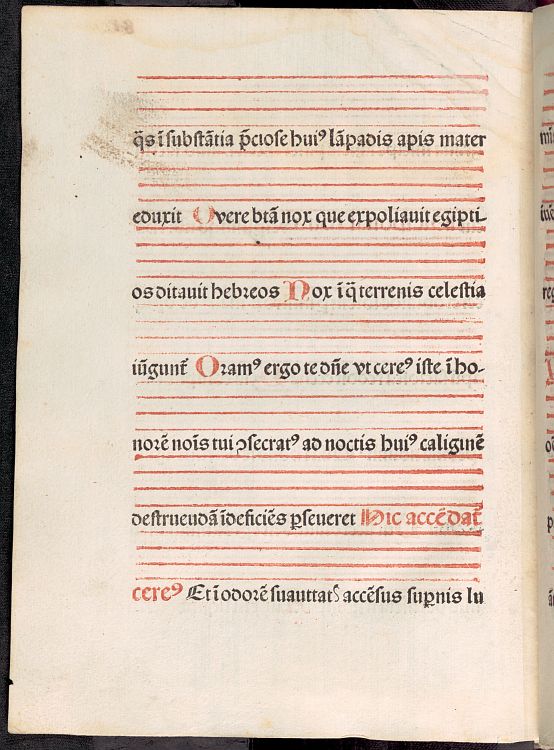 q̄s ī substātia p̄ciose huiꝰ lāpadis apis mater
eduxit Overe btā nox que expoliavit egipti-
os ditavit hebreos Nox ī q̄ terrenis celestia
iūgunt̄ Oramꝰ ergo te dn̄e vt cereꝰ iste ī ho-
norē nōis tui ꝯsecratꝰ ad noctis huiꝰ caliginē
destruendā īdeficiēs ꝑseueret Hic accēdat̄
cereꝰ Et ī odorē suauttatꝭ accēsus suꝑnis lu